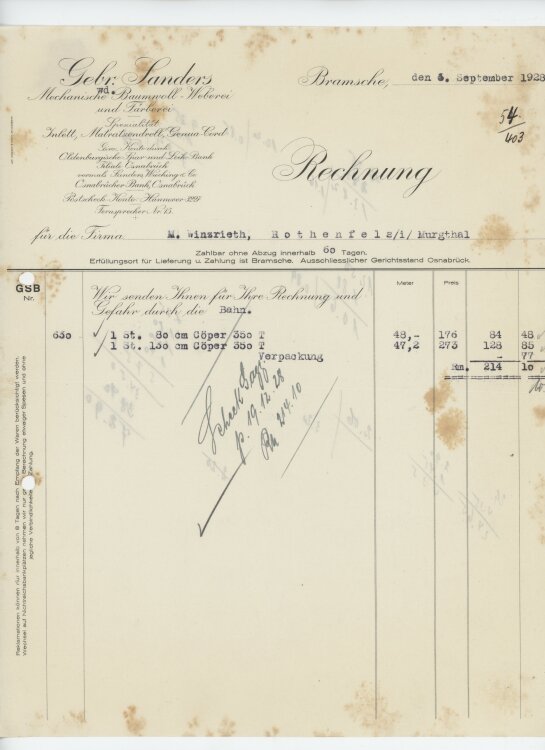 Gebr. Sanders
wd.
Mechanische Baumwoll-Weberei
und Färberei
Spezialität
Inlett, Matratzendrell, Genua-Cord
Giro-Konto durch
Oldenburgische Spar- und Leih-Bank
Filiale Osnabrück
vormals Hunders Wücking & Co
Osnabrücker Bank, Osnabrück
Postscheck-Konto: Hannover 3297
Fernsprecher Nr. 13.
Bramsche, den 3. September 1928
54
403
Rechnung
für die Firma M. Winzrieth, Rothenfels/i/ Murgthal
Zahlbar ohne Abzug innerhalb 60 Tagen.
Erfüllungsort für Lieferung u. Zahlung ist Bramsche. Ausschliesslicher Gerichtsstand Osnabrück.
GSB
Nr.
Meter Preis
Wir senden Ihnen für Ihre Rechnung und
Gefahr durch die Bahn.
630 1 St. 80 cm Cöper 350 T 48,- 176 84 48
1 St. 130 cm Cöper 350 T 47,2 273 128 85
Verpackung - 77
Rm. 214 10
p. 19.12.28
Rm 214.10
Reklamationen können nur innerhalb von 8 Tagen nach Empfang der Waren berücksichtigt werden.
Wechsel auf Nichtreichsbankplätzen nehmen wir nur gegen Berechnung etwaiger Spesen und ohne
jegliche Verbindlichkeit in Zahlung.